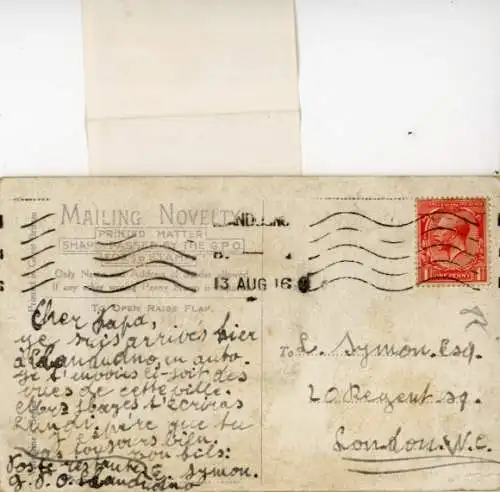 MAILING NOVELTY
PRINTED MATTER
SHAPE PASSED BY THE G.P.O.
Only Name and Address of Sender allowed
If any other Penny
TO OPEN RAISE FLAP.
13 AUG 16
ONE PENNY
Cher Papa,
je suis arrivés hier
à Llandudno, en auto.
je t'envoies ci-joit des
vues de cette ville.
t'écriras
Lundi. J'éspère que tu
vas toujours bien.
ton fils.
Poste restante E. Symon.
G.P.O. Llandudno
To E. Symon. Esq.
20 Regent sq.
London. W.C.